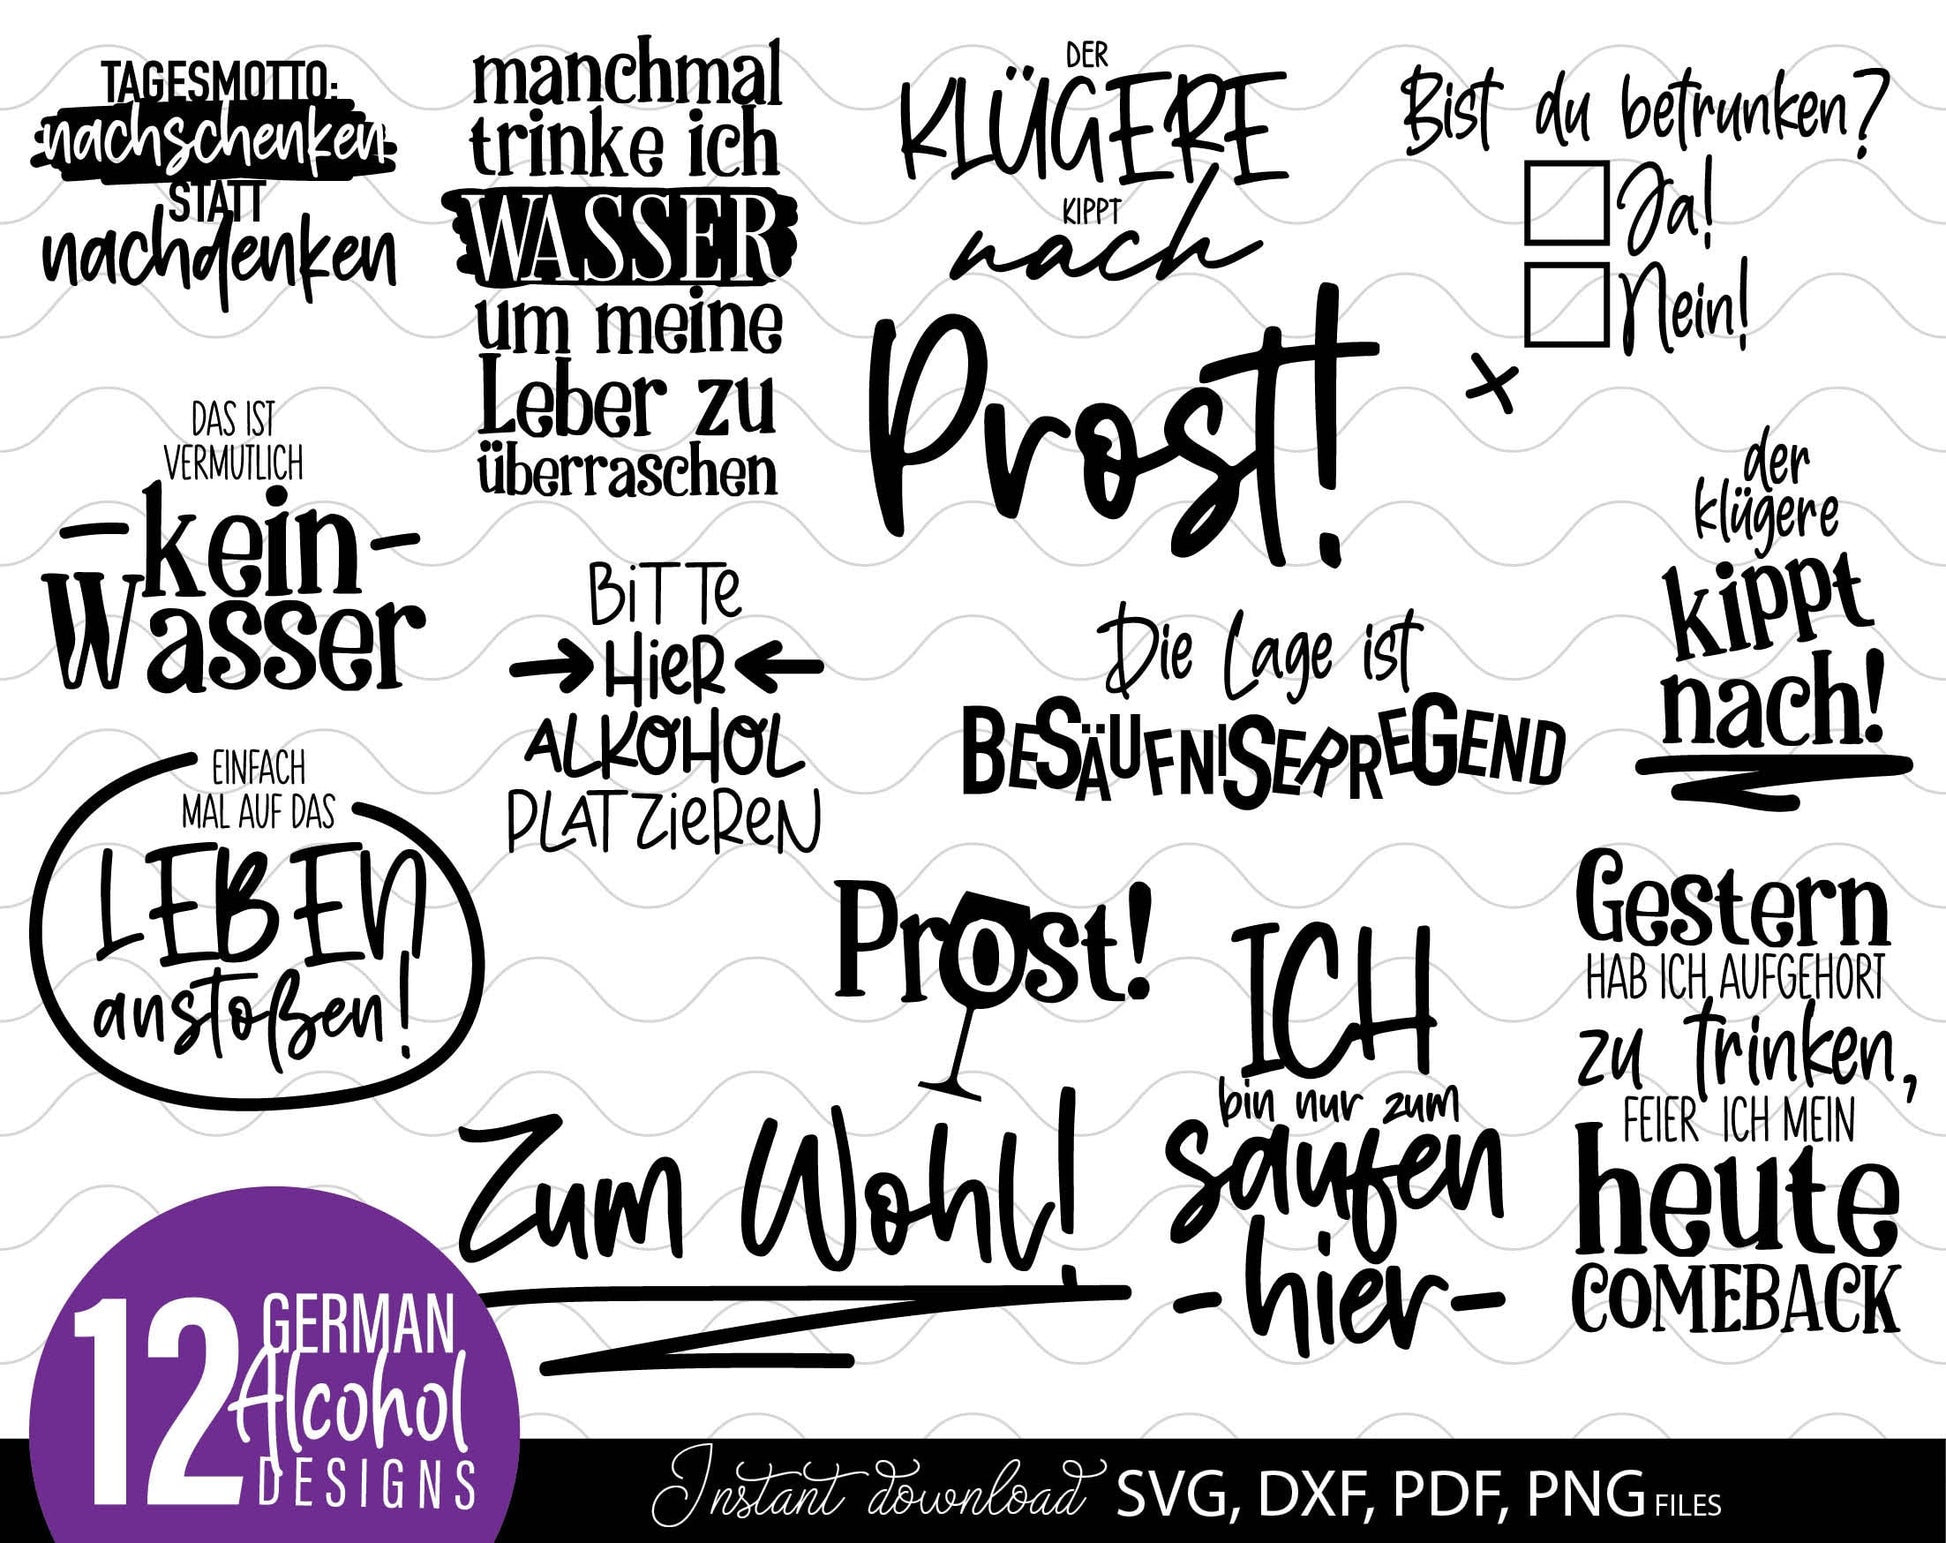 TAGESMOTTO:
nachschenken
STATT
nachdenken
manchmal
trinke ich
WASSER
um meine
Leber zu
überraschen
DER
KLÜGERE
KIPPT
nach
Bist du betrunken?
Ja!
Nein!
x
Prost!
DAS IST
VERMUTLICH
-kein-
Wasser
BiTTe
HieR
ALKOHOL
PLATZieReN
der
klügere
kippt
nach!
Die Lage ist
BESÄUFNISERREGEND
EINFACH
MAL AUF DAS
LEBEN
anstoßen!
Prost!
ICH
bin nur zum
saufen
-hier-
Gestern
HAB ICH AUFGEHÖRT
zu trinken,
FEIER ICH MEIN
heute
COMEBACK
Zum Wohl!
12 GERMAN
Alcohol
DESIGNS
Instant download SVG, DXF, PDF, PNG FILES